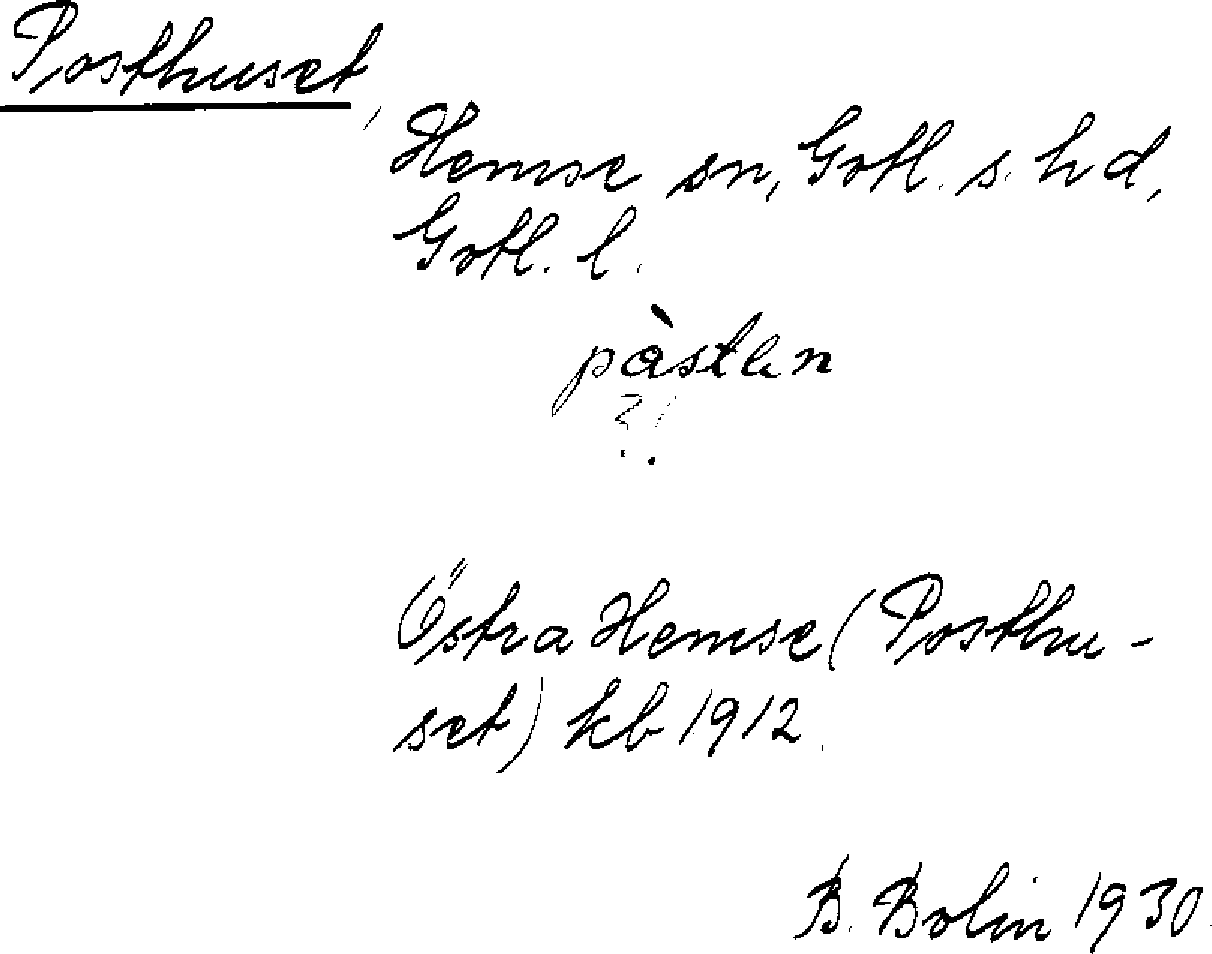 Posthuset,
Hemse sn, Gotl. s. hd,
Gotl. l.
pàsten
?!
Östra Hemse (Posthu-
set) kb 1912.
B. Bolin 1930.